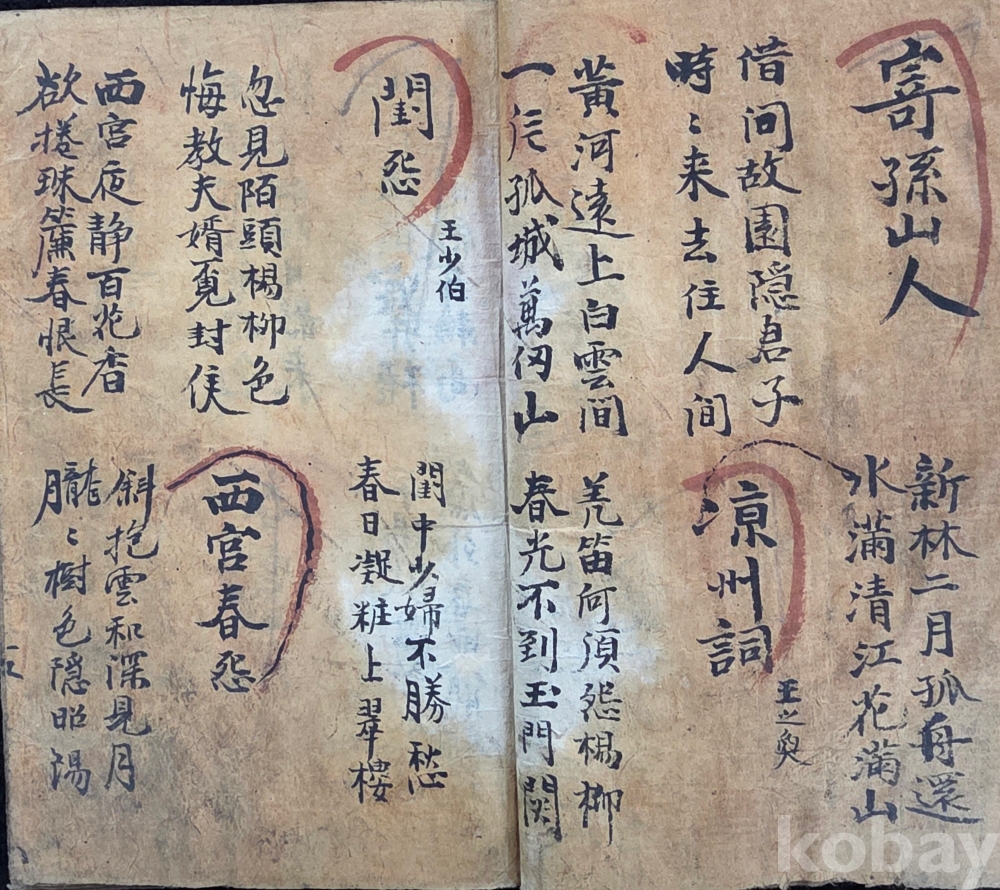 寄孫山人
新林二月孤舟還
水滿清江花滿山
借问故園隐君子
時〻来去住人间
凉州詞
王之奐
黃河遠上白雲间
一片孤城萬仞山
羌笛何須怨楊柳
春光不到玉門関
閨怨
王少伯
閨中少婦不勝愁
春日凝粧上翠樓
忽見陌頭楊柳色
悔教夫婿覓封侯
西宮春怨
西宮夜静百花香
欲捲珠簾春恨長
斜抱雲和深見月
朧〻樹色隐昭陽
kobay